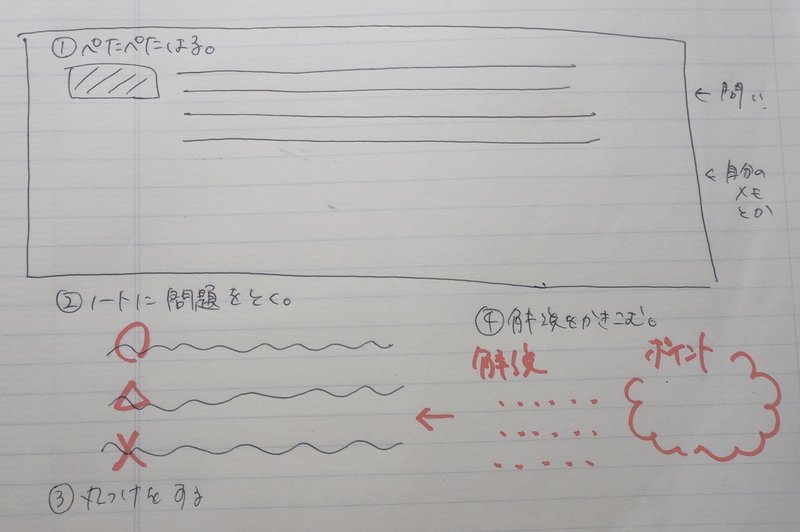 ①ペたペたはる。
← 問い
← 自分の
メモ
とか
②ノートに問題をとく。
④解说をかきこむ。
解说
ポイント
③丸つけをする